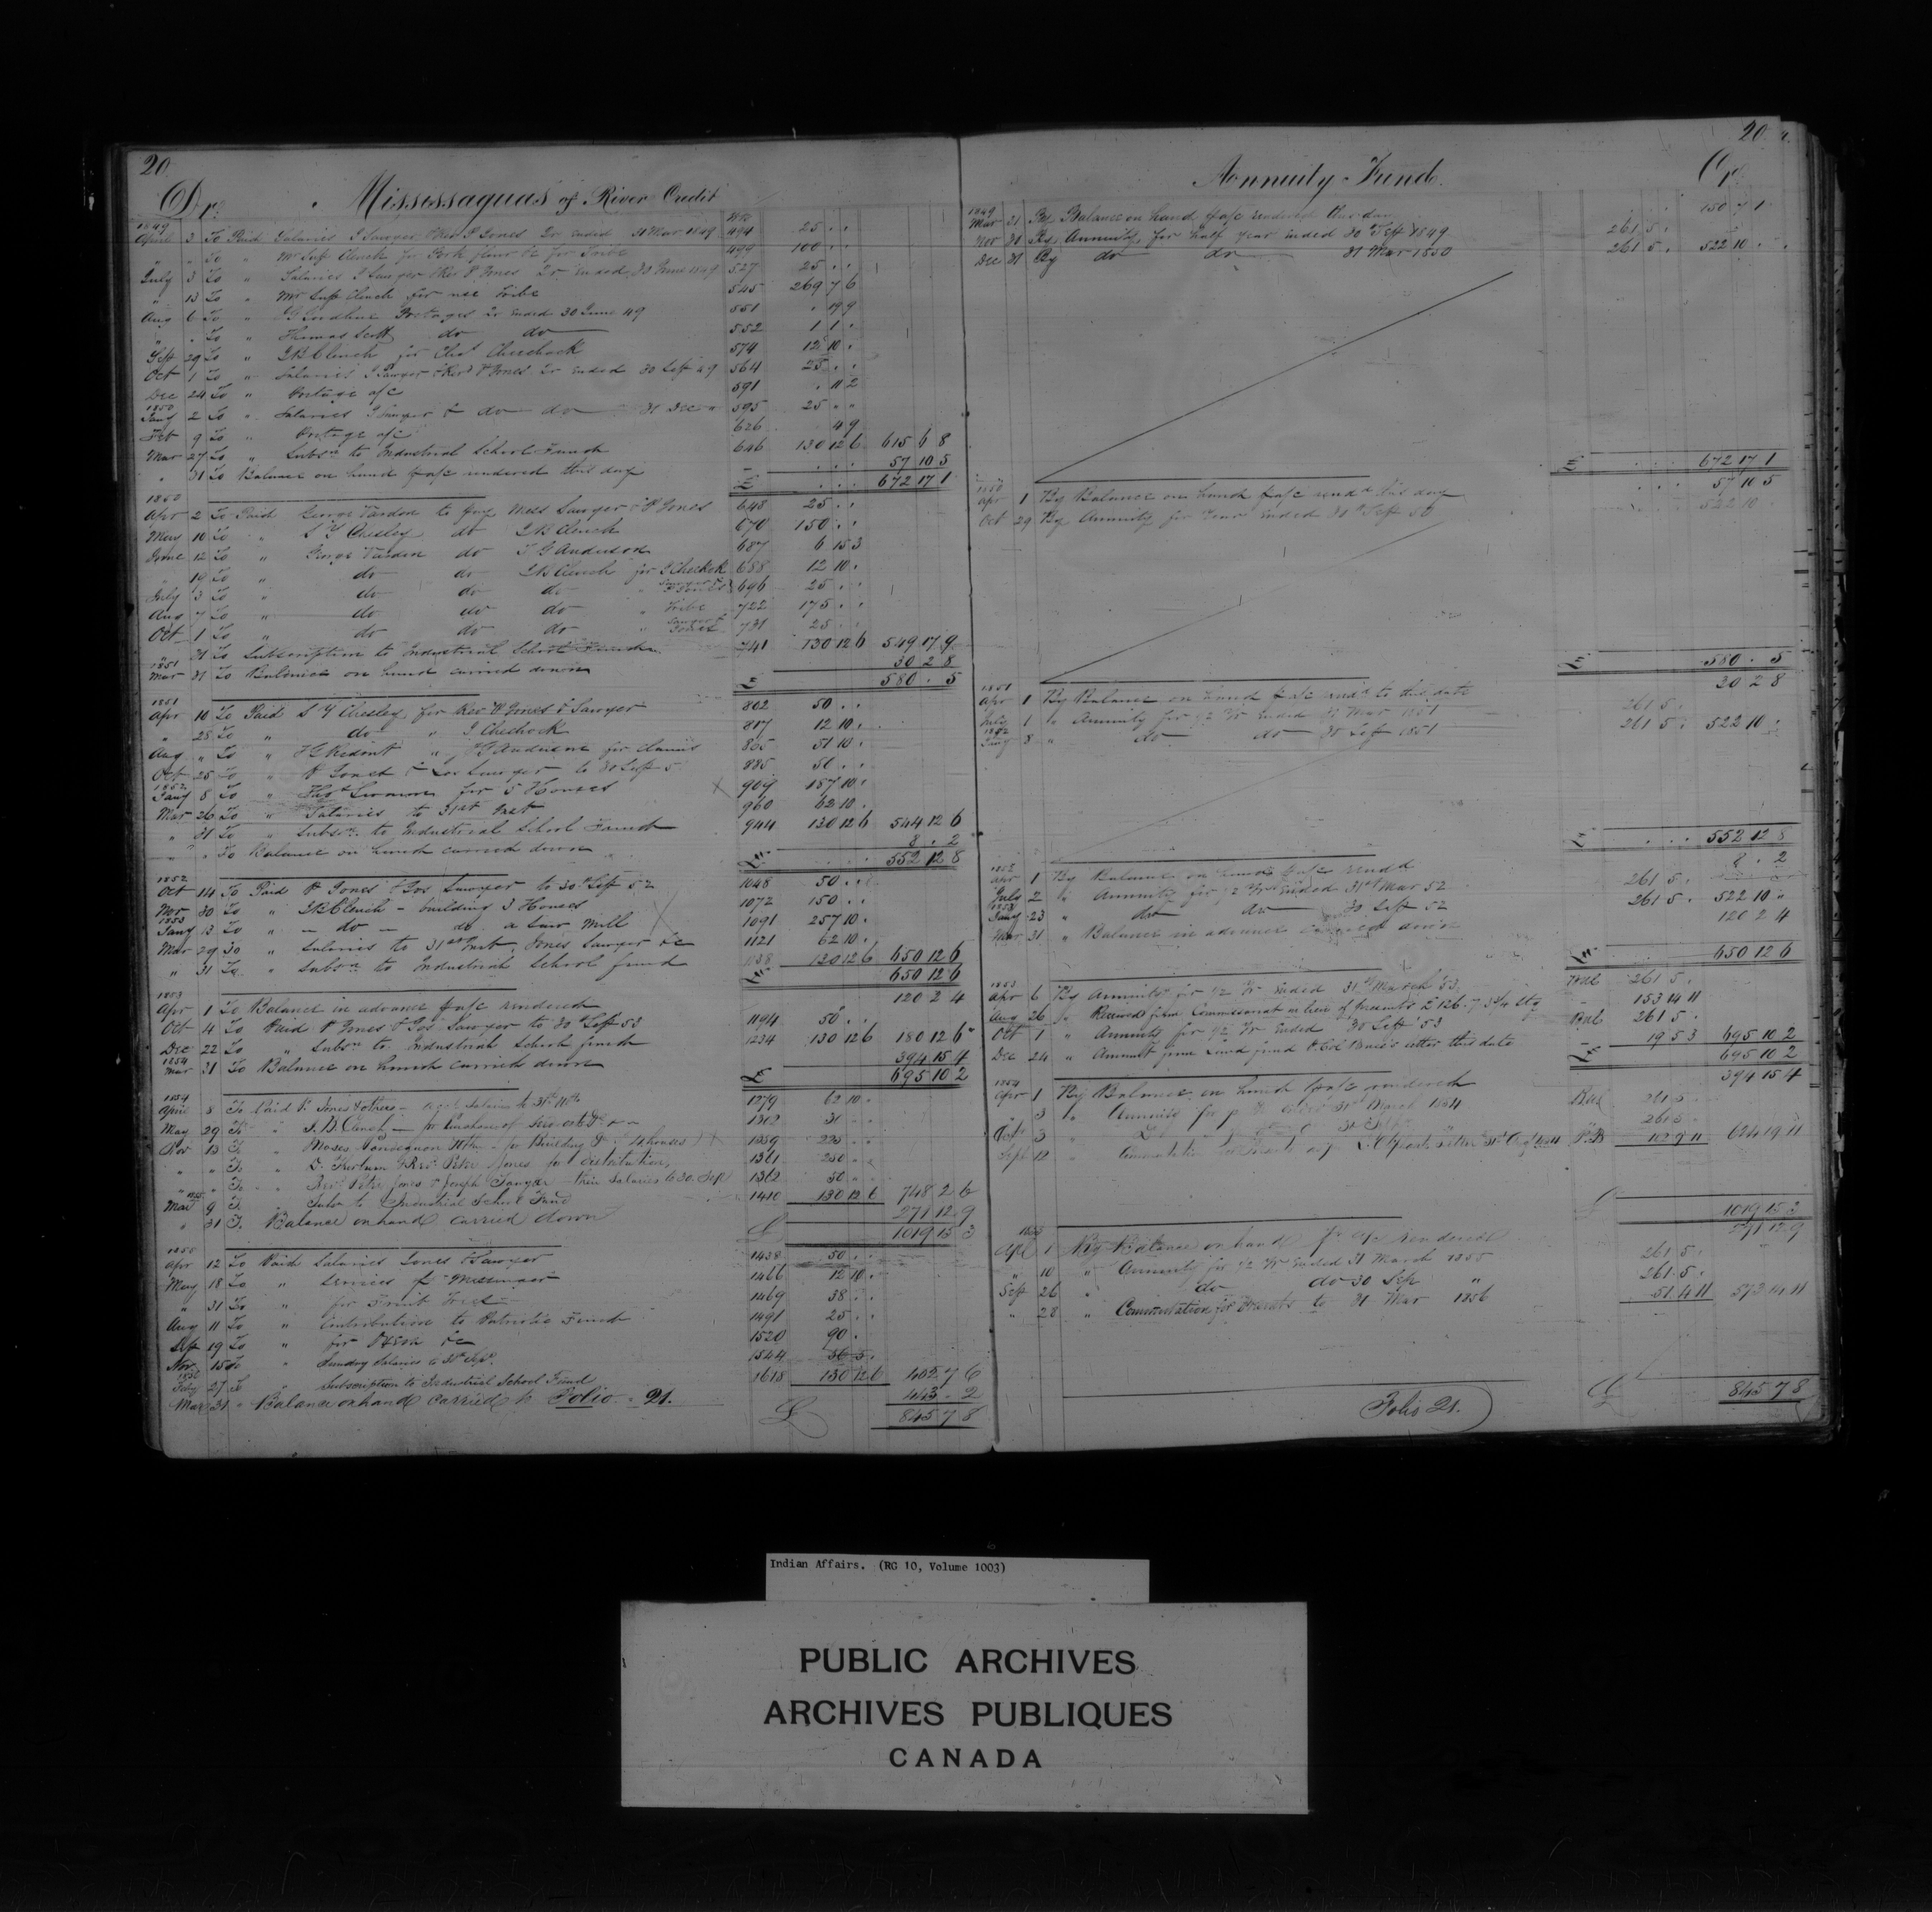 20
Dr. Mississaguas of River Credit
1849 No
April 3 To Paid Salaries J Sawyer & Rev P Jones Qr ended 31 Mar 1849 494 25 . .
" " To " Mr Supt Clench for Pork flour &c for Tribe 499 100 . .
July 3 To " Salaries J Sawyer & Rev P Jones Qr ended 30 June 1849 527 25 . .
" 13 To " Mr Supt Clench for use Tribe 545 269 7 6
Aug 6 To " Postages Qr ended 30 June 49 551 . 19 9
" " To " Thomas Scott do do 552 1 1 .
Sept 29 To " J B Clench for Chas Chechock 574 12 10 .
Oct 1 To " Salaries J Sawyer & Rev P Jones Qr ended 30 Sept 49 564 25 . .
Dec 24 To " Postage a/c 591 . 11 2
1850
Jany 2 To " Salaries J Sawyer & do do 31 Dec " 595 25 " "
Feb 9 To " Postage a/c 626 4 9
Mar 27 To " Subsn to Industrial School Fund 646 130 12 6 615 6 8
" 31 To Balance on hand p a/c rendered this day 57 10 5
£ . . . 672 17 1
1850
Apr 2 To Paid George Vardon to pay Mess Sawyer & P Jones 648 25 . .
May 10 To " S Y Chesley do J B Clench 670 150 . .
June 12 To " George Vardon do T G Anderson 687 6 15 3
" 19 To " do do J B Clench for J Chechok 688 12 10 .
July 3 To " do do do " Sawyer & P Jones 696 25 . .
Aug 7 To " do do do " Tribe 722 175 . .
Oct 1 To " do do do " Sawyer & Jones 731 25 . .
" 31 To Subscription to Industrial School Funds 741 130 12 6 549 17 9
1851
Mar 31 To Balance on hand carried down 30 2 8
£ 580 . 5
1851
Apr 10 To Paid S Y Chesley for Rev P Jones & Sawyer 802 50 . .
" 28 To " do " J Chechock 817 12 10 .
Aug " To " T G Anderson for claims 865 51 10 .
Oct 25 To " P Jones & Jos Sawyer to 30 Sept 5 885 50 . .
1852
Jany 8 To " for 5 Houses 909 187 10 .
Mar 26 To " Salaries to 31st Inst 960 62 10 .
" 31 To " Subsn to Industrial School Fund 944 130 12 6 544 12 6
" " To Balance on hand carried down 8 . 2
£ . . . 552 12 8
1852
Oct 14 To Paid P Jones & Jos Sawyer to 30th Sept 52 1048 50 . .
Nov 30 To " J B Clench - building 3 Houses 1072 150 . .
1853
Jany 13 To " - do - do a Saw Mill 1091 257 10 .
Mar 29 To " Salaries to 31st Inst, Jones Sawyer &c 1121 62 10 .
" 31 To " Subsn to Industrial School fund 1138 130 12 6 650 12 6
£ 650 12 6
1853
Apr 1 To Balance in advance p a/c rendered 120 2 4
Oct 4 To Paid P Jones & Jos Sawyer to 30th Sept 53 1194 50 . .
Dec 22 To " Subsn to Industrial School fund 1234 130 12 6 180 12 6
1854
Mar 31 To Balance on hand carried down 394 15 4
£ 695 10 2
1854
April 8 To Paid P. Jones & others - Salaries to 31st 1279 62 10 .
May 29 To " J. B. Clench - for purchase of 1302 31 . .
Nov 13 To " Moses for Building 1359 225 . .
" " To " & Revd Peter Jones for distribution 1361 250 . .
" " To " Revd Peter Jones & Joseph Sawyer - their Salaries to 30 Sept 1362 50 . .
1855
Mar 9 To " Subn to Industrial School Fund 1410 130 12 6 748 2 6
" 31 To Balance on hand carried down 271 12 9
£ 1019 15 3
1855
Apr 12 To Paid Salaries Jones & Sawyer 1438 50 . .
May 18 To " Services of Messenger 1466 12 10 .
" 31 To " for Fruit Trees 1469 38 . .
Aug 11 To " Contribution to Patriotic Fund 1491 25 . .
Sept 19 To " for &c 1520 90 .
Nov. 15 To " Sundry Salaries to 30th Sept. 1544 56 5 .
1856
Feby 27 To " Subscription to Industrial School Fund 1618 130 12 6 402 7 6
Mar 31 " Balance on hand carried to Folio - 21. 443 - 2
£ 845 7 8
20
Annuity Fund. Cr.
1849
Mar 31 By Balance on hand p a/c rendered this day 150 7 1
Nov 30 By Annuity, for half year ended 30th Sept 1849 261 5 .
Dec 31 By do do 31 Mar 1850 261 5 . 522 10 .
£ . . . 672 17 1
1850
Apr 1 By Balance on hand p a/c rend'd this day . . . 57 10 5
Oct 29 By Annuity for Year Ended 30th Sept 50 522 10
£ 580 . 5
1851
Apr 1 By Balance on hand p a/c rend'd to this date 30 2 8
July 1 " Annuity for 1/2 Yr Ended 31 Mar 1851 261 5 .
1852
Jany 8 " do do 30 Sept 1851 261 5 . 522 10 .
£ . . . 552 12 8
1852
Apr 1 By Balance on hand p a/c rendd 8 . 2
July 2 " Annuity for 1/2 Yr Ended 31st Mar 52 261 5 .
1853
Jany 23 " do do 30 Sept 52 261 5 . 522 10 "
Mar 31 " Balance in advance carried down 120 2 4
£ 650 12 6
1853
Apr 6 By Annuity for 1/2 Yr Ended 31st March 53 261 5 .
Aug 26 " Received from Commissariat in lieu of presents £126.7.3¾ Stg 153 14 11
Oct 1 " Annuity for 1/2 Yr Ended 30 Sept 53 261 5 .
Dec 24 " Amount from Land fund p Col Bruce's letter this date 19 5 3 695 10 2
£ 695 10 2
1854
Apr 1 By Balance on hand p a/c rendered 394 15 4
" 3 " Annuity for 31st March 1854 261 5 .
Oct 3 " 261 5 .
Sept 12 " Commutation 102 9 11 624 19 11
£ 1019 15 3
1855
Apl 1 By Balance on hand p a/c rendered 271 12 9
" 10 " Annuity for 1/2 Yr Ended 31 March 1855 261 5 .
Sept 26 " do do 30 Sep " 261 5 .
" 28 " Commutation for Presents to 31 Mar 1856 51 4 11 573 14 11
£ 845 7 8
Folio 21.
Indian Affairs. (RG 10, Volume 1003)
PUBLIC ARCHIVES
ARCHIVES PUBLIQUES
CANADA